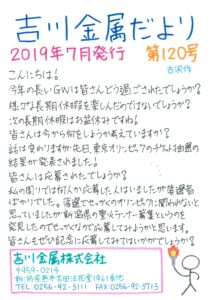 吉川金属だより
2019年7月発行 第120号
古沢作
こんにちは!
今年の長いGWは皆さんどう過ごされたでしょうか?
様々な長期休暇を楽しんだのではないでしょうか?
次の長期休暇はお盆休みですね!
皆さんは今から何をしようか考えていますか?
話は変わりますが先日、東京オリンピックのチケット抽選の
結果が発表されました。
皆さんは応募されたでしょうか?
私の周りでは何人か応募した人はいましたが落選者
ばかりでした。落選でせっかくのオリンピックに関われないと
思っていましたが新潟県の聖火ランナー募集というのを
発見したのでせっかくなので応募してみようかと思います。
皆さんもぜひ記念に応募してみてはいかがでしょうか?
吉川金属株式会社
〒959-0214
新潟県燕市吉田法花堂1961番地
TEL.0256-92-3111 FAX.0256-92-3713